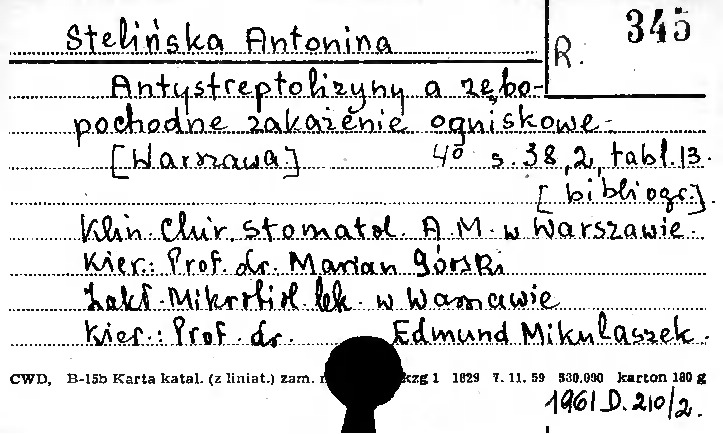 345
Stelińska Antonina
R.
Antystreptolizyny a zębo-
pochodne zakażenie ogniskowe.
[Warszawa] 4° s. 38, 2, tabl. 13.
[bibliogr.].
Klin. Chir. Stomatol. A.M. w Warszawie.
Kier.: Prof. dr. Marian Górski
Zakł. Mikrobiol. lek. w Warszawie
Kier.: Prof. dr. Edmund Mikulaszek.
CWD, B-15b Karta katal. (z liniat.) zam. kzg 1 1829 7. 11. 59 530.000 karton 180 g
1961 D. 210/2.